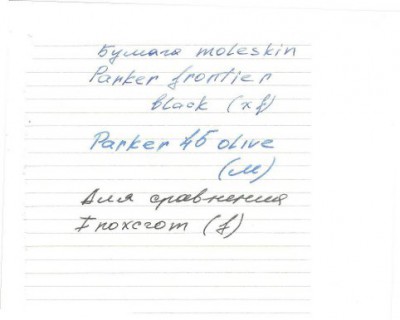 Бумага moleskin
Parker frontier
black (xf)
Parker 45 olive
(M)
Для сравнения
(f)